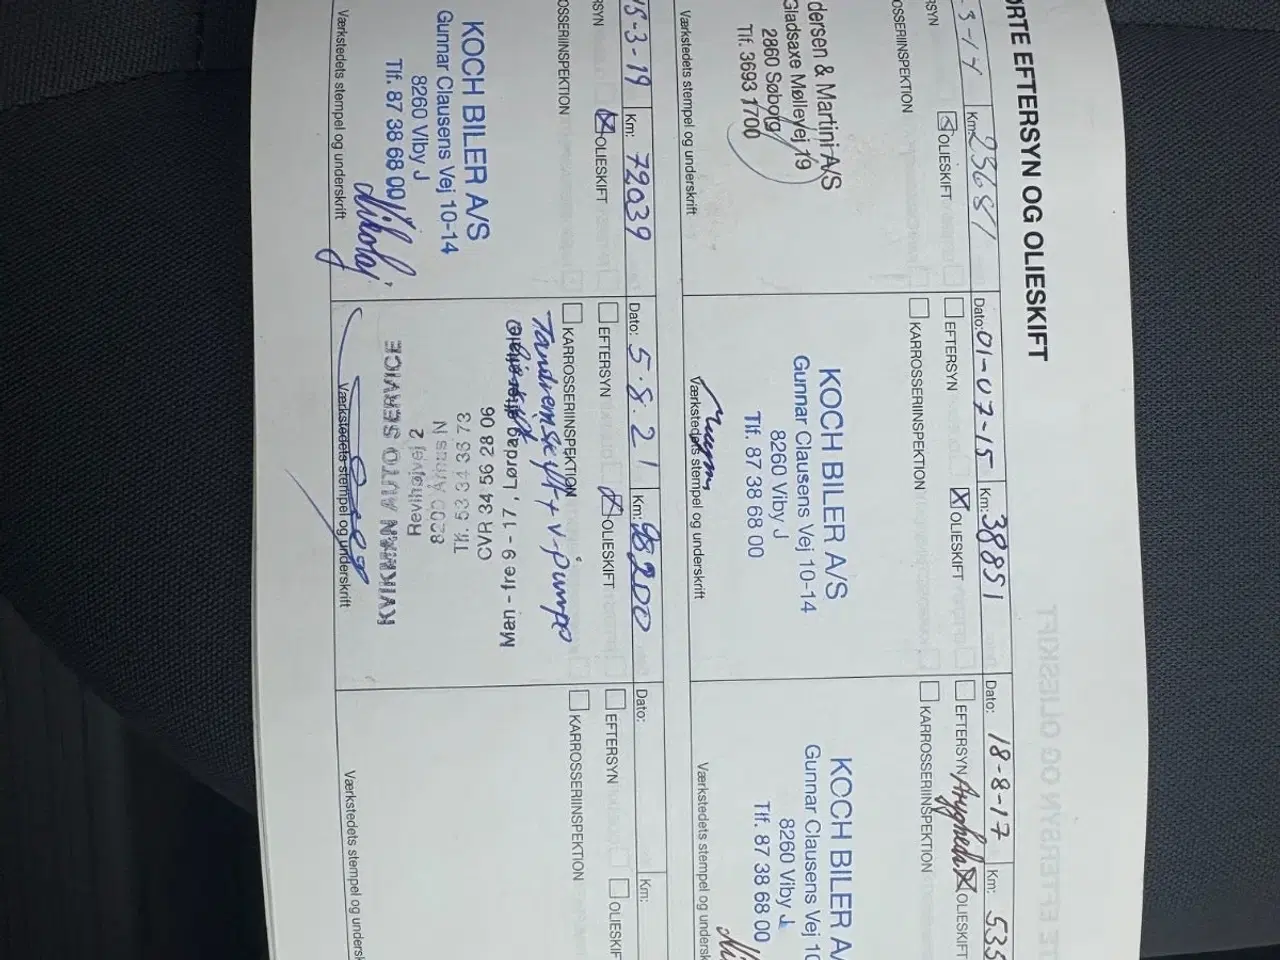 ORTE EFTERSYN OG OLIESKIFT
Km: 23681
OLIESKIFT
OSSERIINSPEKTION
dersen & Martini A/S
Gladsaxe Møllevej 19
2860 Søborg
Tlf. 3693 1700
Værkstedets stempel og underskrift
Dato: 01-07-15 Km: 38851
EFTERSYN OLIESKIFT
KARROSSERIINSPEKTION
KOCH BILER A/S
Gunnar Clausens Vej 10-14
8260 Viby J
Tlf. 87 38 68 00
Værkstedets stempel og underskrift
Dato: 18-8-17 Km: 535
EFTERSYN OLIESKIFT
KARROSSERIINSPEKTION
KOCH BILER A/
Gunnar Clausens Vej 10
8260 Viby J
Tlf. 87 38 68 00
Værkstedets stempel og undersk
15-3-19 Km: 72039
RSYN OLIESKIFT
OSSERIINSPEKTION
KOCH BILER A/S
Gunnar Clausens Vej 10-14
8260 Viby J
Tlf. 87 38 68 00
Nikolaj
Værkstedets stempel og underskrift
Dato: 5.8.21 Km: 95200
EFTERSYN OLIESKIFT
KARROSSERIINSPEKTION
Tandremskift + v-pumpe
Man - fre 9 - 17, Lørdag
CVR 34 56 28 06
KVIKMAN AUTO SERVICE
Værkstedets stempel og underskrift
Dato: Km:
EFTERSYN OLIESKIF
KARROSSERIINSPEKTION
Værkstedets stempel og undersk